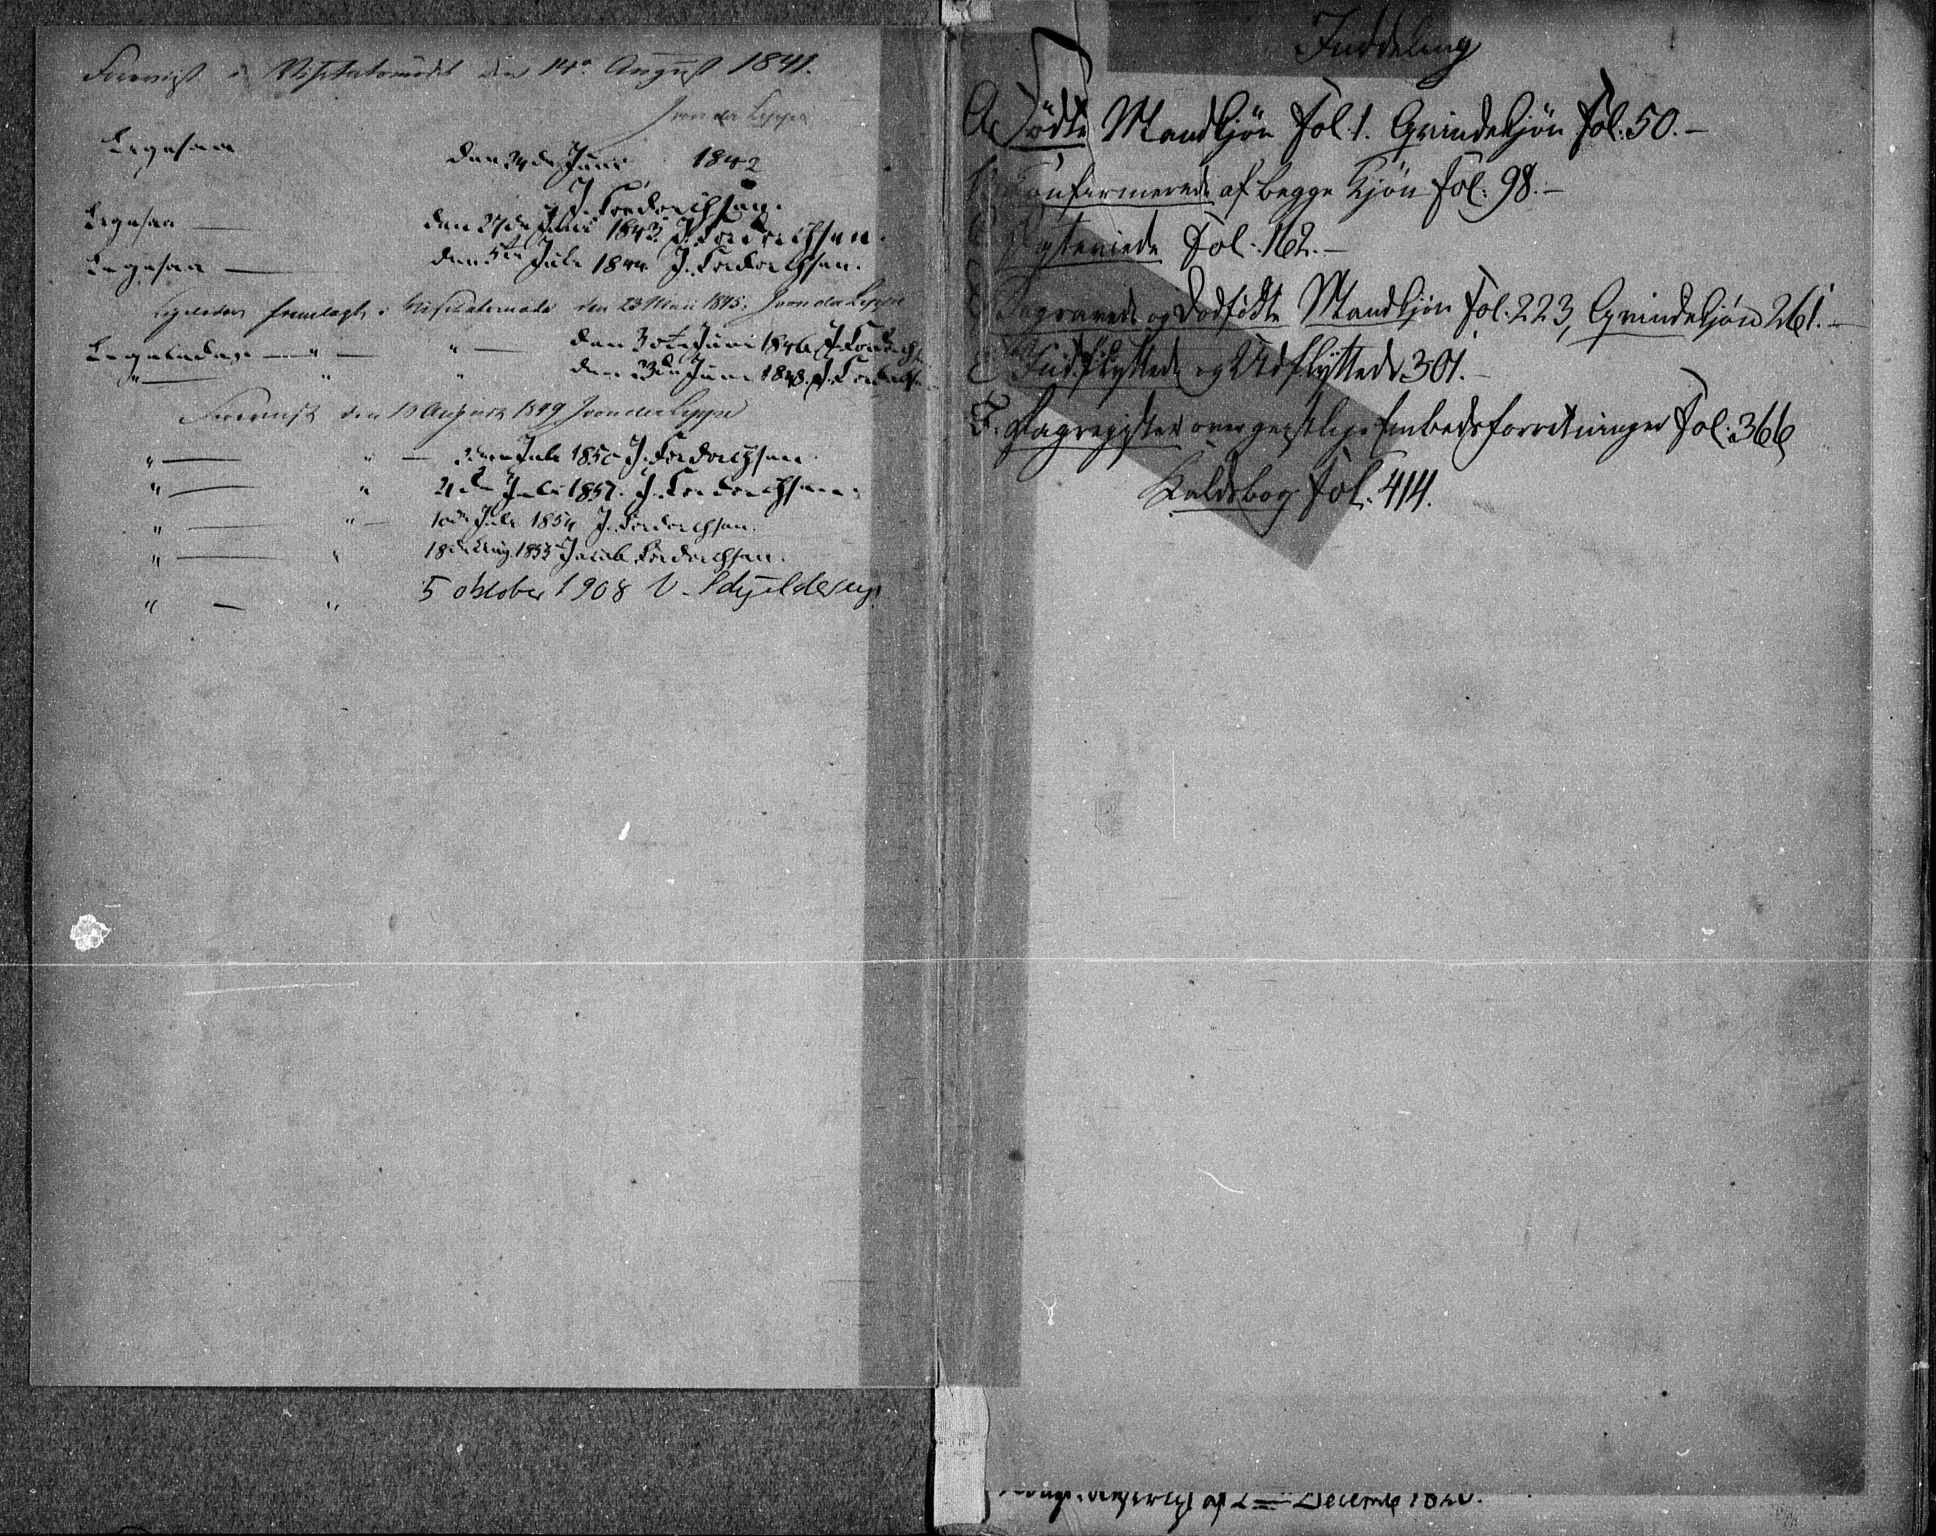 Foreviist i Visitatsmødet den 14de August 1841.
von der Lippe
Ligesaa den 24de Juni 1842
J. Friderichsen.
Ligesaa den 27de Juni 1843 J. Friderichsen.
Ligesaa den 5te Juli 1844 J. Friderichsen.
Ligeledes fremlagt i Visitatsmøde den 23 Juni 1845. J von der Lippe
Ligeledes — " — " — den 30te Juni 1846 J. Friderichs
" — " " den 3die Juni 1848. J. Friderichs
Foreviist den 13 August 1849 J von der Lippe
" — " — Juli 1850 J. Friderichsen
" — " 21de Juli 1851. J. Friderichsen.
" — " — 10de Juli 1854 J. Friderichsen.
" — " 18de Aug. 1855 Jacob Friderichsen.
" — " 5 oktober 1908 V. Skjelderup.
Inddeling
A Fødte Mandkjøn Fol. 1. Qvindekjøn Fol. 50.—
Confirmerede af begge Kjøn Fol. 98.—
Copulerede Fol. 162.—
Begravede og Dødfødte Mandkjøn Fol. 223, Qvindekjøn 261.—
E Indflyttede og Udflyttede 301.—
F. Dagregister over geistlige Embedsforretninger Fol. 366
Kaldsbog Fol. 414.
af 2den December 1820.